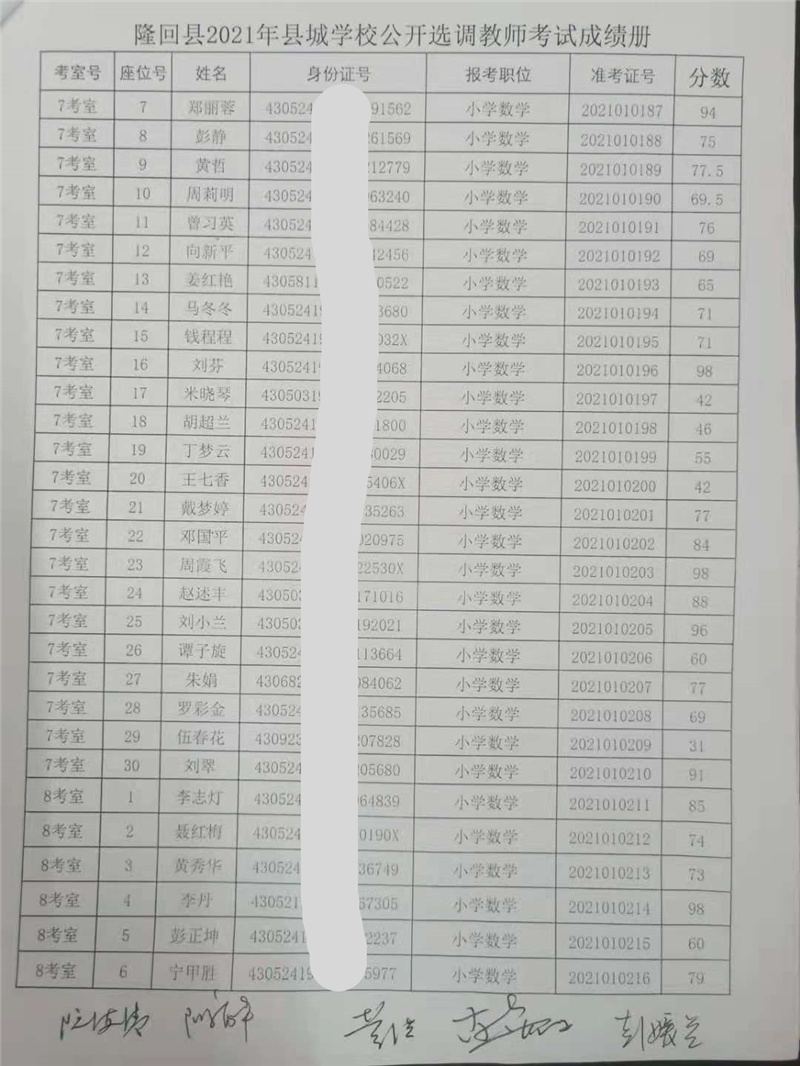 隆回县2021年县城学校公开选调教师考试成绩册
考室号 座位号 姓名 身份证号 报考职位 准考证号 分数
7考室 7 郑丽蓉 430524 91562 小学数学 2021010187 94
7考室 8 彭静 430524 261569 小学数学 2021010188 75
7考室 9 黄哲 430524 212779 小学数学 2021010189 77.5
7考室 10 周莉明 430524 063240 小学数学 2021010190 69.5
7考室 11 曾习英 430524 84428 小学数学 2021010191 76
7考室 12 向新平 430524 42456 小学数学 2021010192 69
7考室 13 姜红艳 430581 0522 小学数学 2021010193 65
7考室 14 马冬冬 43052419 3680 小学数学 2021010194 71
7考室 15 钱程程 43052419 032X 小学数学 2021010195 71
7考室 16 刘芬 43052419 4068 小学数学 2021010196 98
7考室 17 米晓琴 43050319 2205 小学数学 2021010197 42
7考室 18 胡超兰 4305241 1800 小学数学 2021010198 46
7考室 19 丁梦云 4305241 0029 小学数学 2021010199 55
7考室 20 王七香 430524 5406X 小学数学 2021010200 42
7考室 21 戴梦婷 430524 35263 小学数学 2021010201 77
7考室 22 邓国平 43052 020975 小学数学 2021010202 84
7考室 23 周霞飞 43052 22530X 小学数学 2021010203 98
7考室 24 赵述丰 43050 171016 小学数学 2021010204 88
7考室 25 刘小兰 43050 192021 小学数学 2021010205 96
7考室 26 谭子旋 43052 113664 小学数学 2021010206 60
7考室 27 朱娟 430682 084062 小学数学 2021010207 77
7考室 28 罗彩金 430524 135685 小学数学 2021010208 69
7考室 29 伍春花 430923 207828 小学数学 2021010209 31
7考室 30 刘翠 430524 205680 小学数学 2021010210 91
8考室 1 李志灯 430524 064839 小学数学 2021010211 85
8考室 2 聂红梅 430524 0190X 小学数学 2021010212 74
8考室 3 黄秀华 430524 36749 小学数学 2021010213 73
8考室 4 李丹 430521 67305 小学数学 2021010214 98
8考室 5 彭正坤 4305241 2237 小学数学 2021010215 60
8考室 6 宁甲胜 43052419 5977 小学数学 2021010216 79